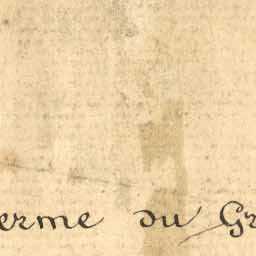 erme du Gr